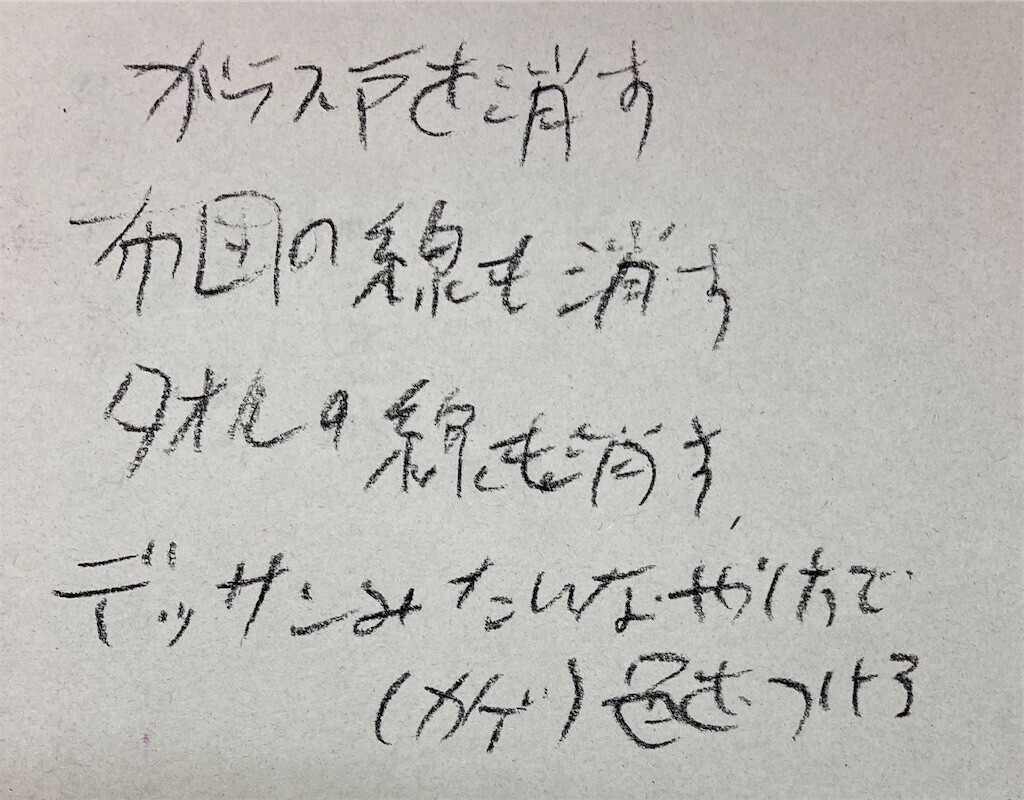 ガラス戸を消す
布団の線も消す
タオルの線も消す
デッサンみたいなやり方で
(カゲ)色をつける